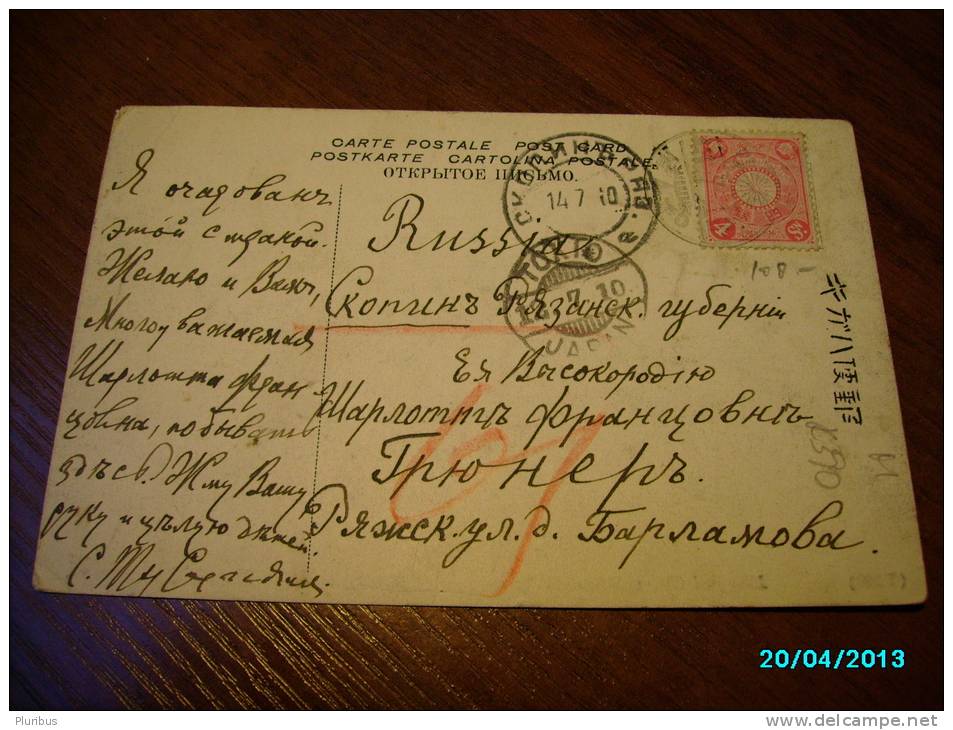 CARTE POSTALE POST CARD
POSTKARTE CARTOLINA POSTALE
ОТКРЫТОЕ ПИСЬМО.
Я очарованъ
этой страной.
Желаю и Вамъ,
Многоуважаемая
Шарлотта Фран
цовна, побывать
здѣсь. Жму Вашу
ручку и цѣлую дѣтей
Russia
Скопинъ Рязанск. губерніи
Ея Высокородію
Шарлоттѣ Францовнѣ
Грюнеръ.
Ряжск. ул. д. Варламова.
СКОПИНЪ РЯЗ.
14 7 10
TOKIO
7. 10
JAPAN
20/04/2013
Pluribus
www.delcampe.net